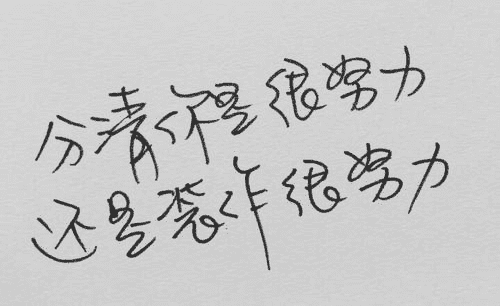 分清你是很努力
还是装作很努力